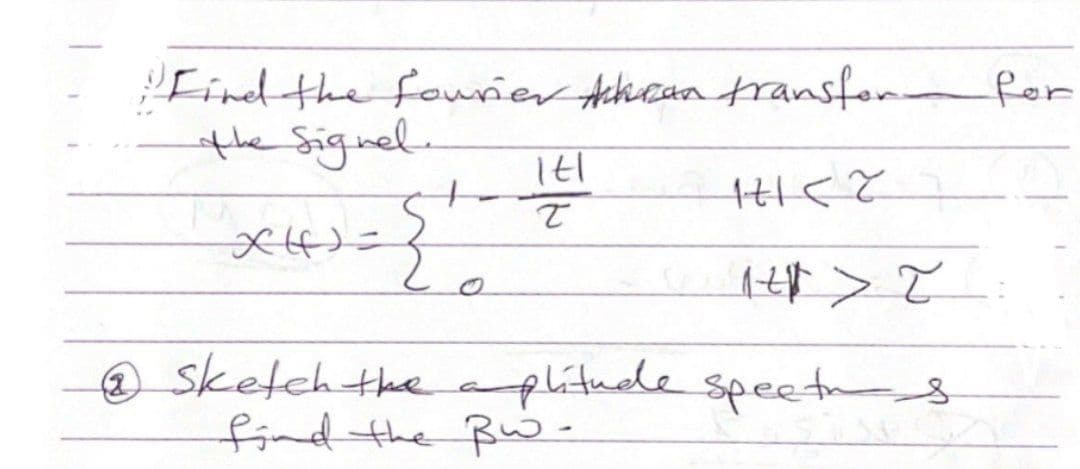 Find the fourier transform for
the signel.
x(t) = { 1 - |t|/τ    |t| < τ
0    |t| > τ
② sketch the amplitude spectrum &
find the BW.